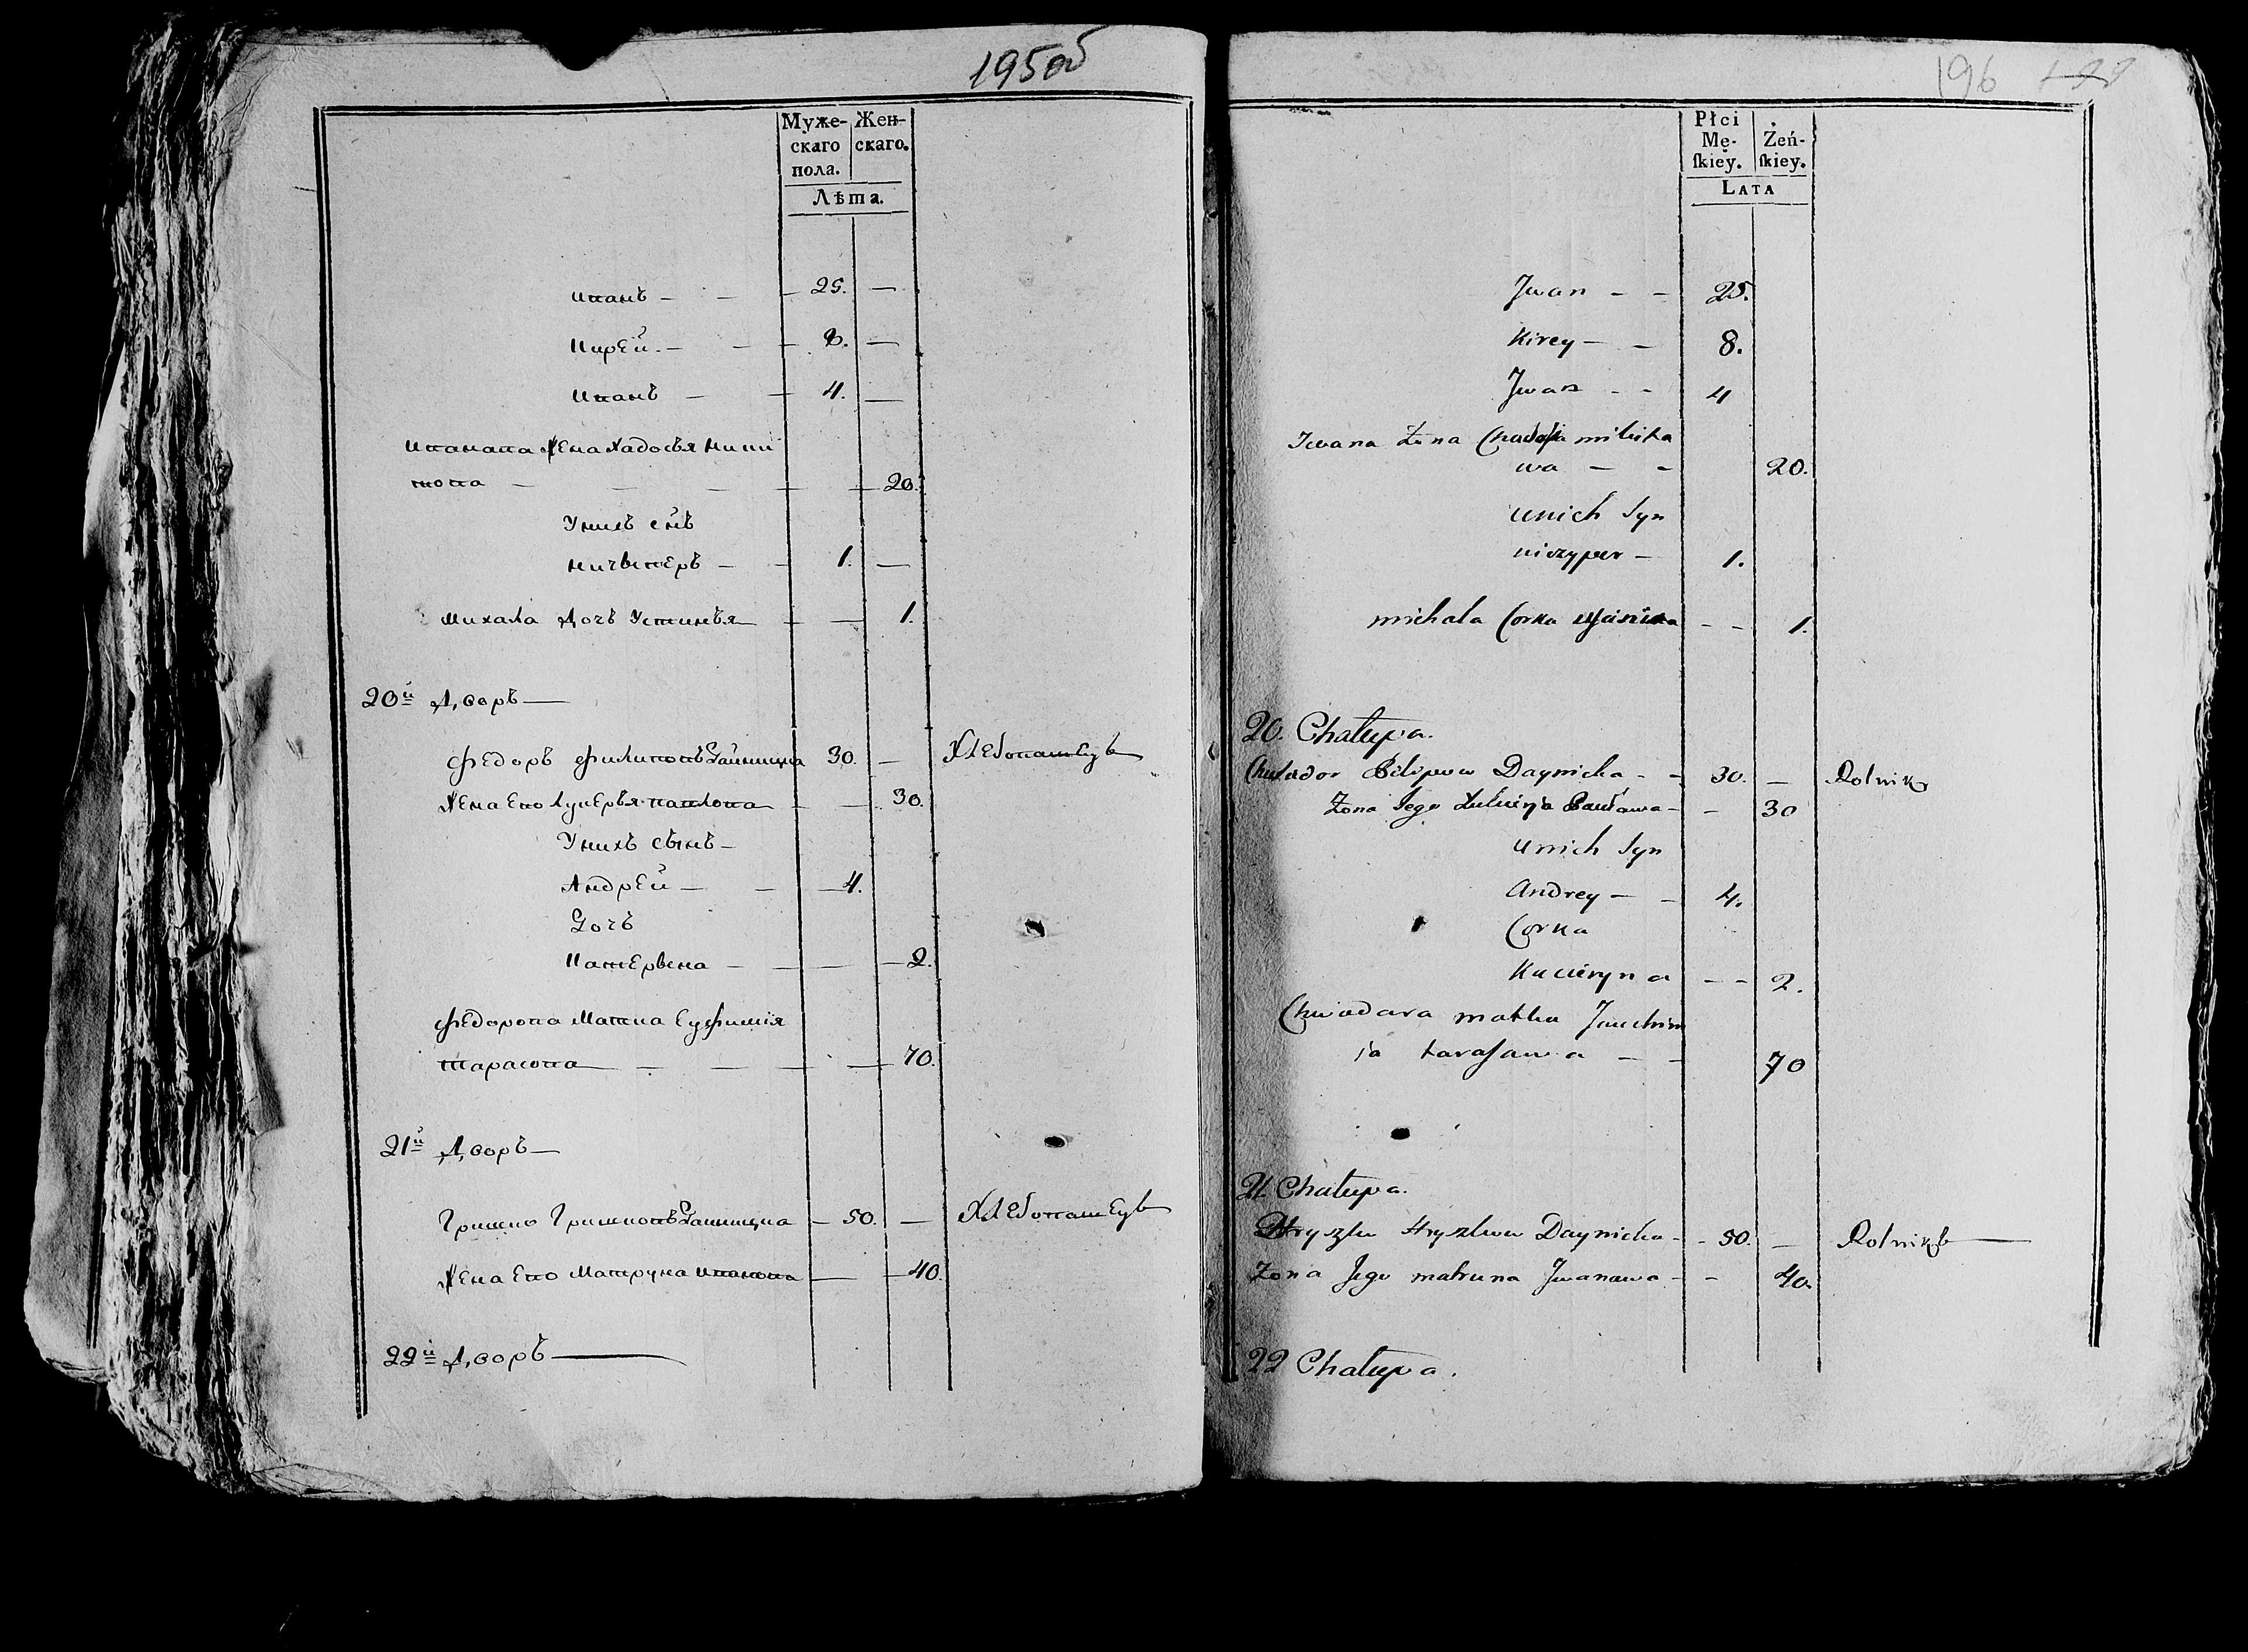 195об
Муже- Жен-
скаго скаго.
пола.
Лѣта.
Иванъ — 25. —
Кирей — 8. —
Иванъ — 4. —
Ивана Жена Хадосья Мики
това — 20.
У нихъ снъ
Ничыперъ — 1. —
Михала дочь Устинья — 1.
20й Дворъ —
Федоръ Филиповъ Дайницка 30. — Хлебопашецъ
Жена Его Лукерья Павлова — 30.
У нихъ сынъ —
Андрей — 4.
Дочь
Катерына — 2.
Федорова Матка Еуфимія
Тарасова — 70.
21й Дворъ —
Гришко Гришковъ Дайницка — 50. — Хлебопашецъ
Жена Его Матруна Иванова — 40.
22й Дворъ —
196
Płci
Mę- Żeń-
ſkiéy. ſkiey.
LATA
Jwan — 25.
Kirey — 8.
Jwan — 4
Iwana Żona Chadosia mikita
wa — 20.
unich Syn
niczyper — 1.
michala Corka — 1.
20. Chalupa.
Chwiador Filipow Daynicka — 30. — Rolnik
Żona Jego Łukierya Pawława — 30
unich Syn
Andrey — 4.
Corka
Kacieryna — 2.
Chwiadara matka Jauchim
ja tarasawa — 70
21 Chalupa.
Hryszko Hryszkow Daynicka — 50. — Rolnik
Żona Jego matruna Jwanawa — 40.
22 Chalupa.